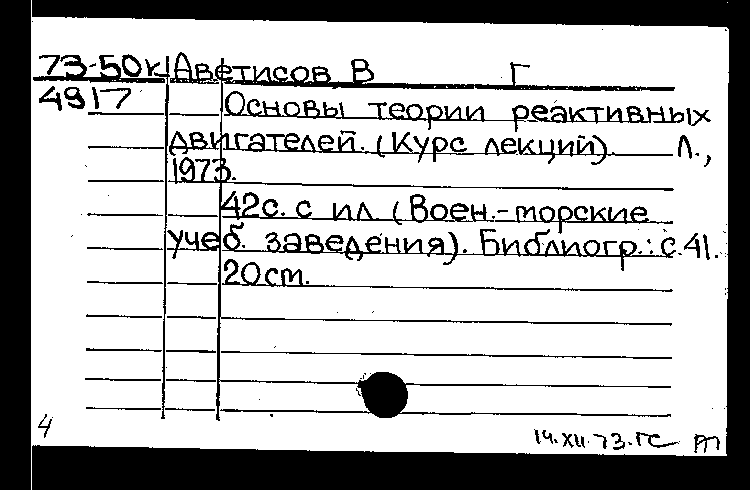 73-50к Аветисов В Г
4917 Основы теории реактивных
двигателей. (Курс лекций). Л.,
1973.
42с. с ил (Воен.-морские
учеб. заведения). Библиогр.: с.41.
20ст.
4
14.XII.73.ГС